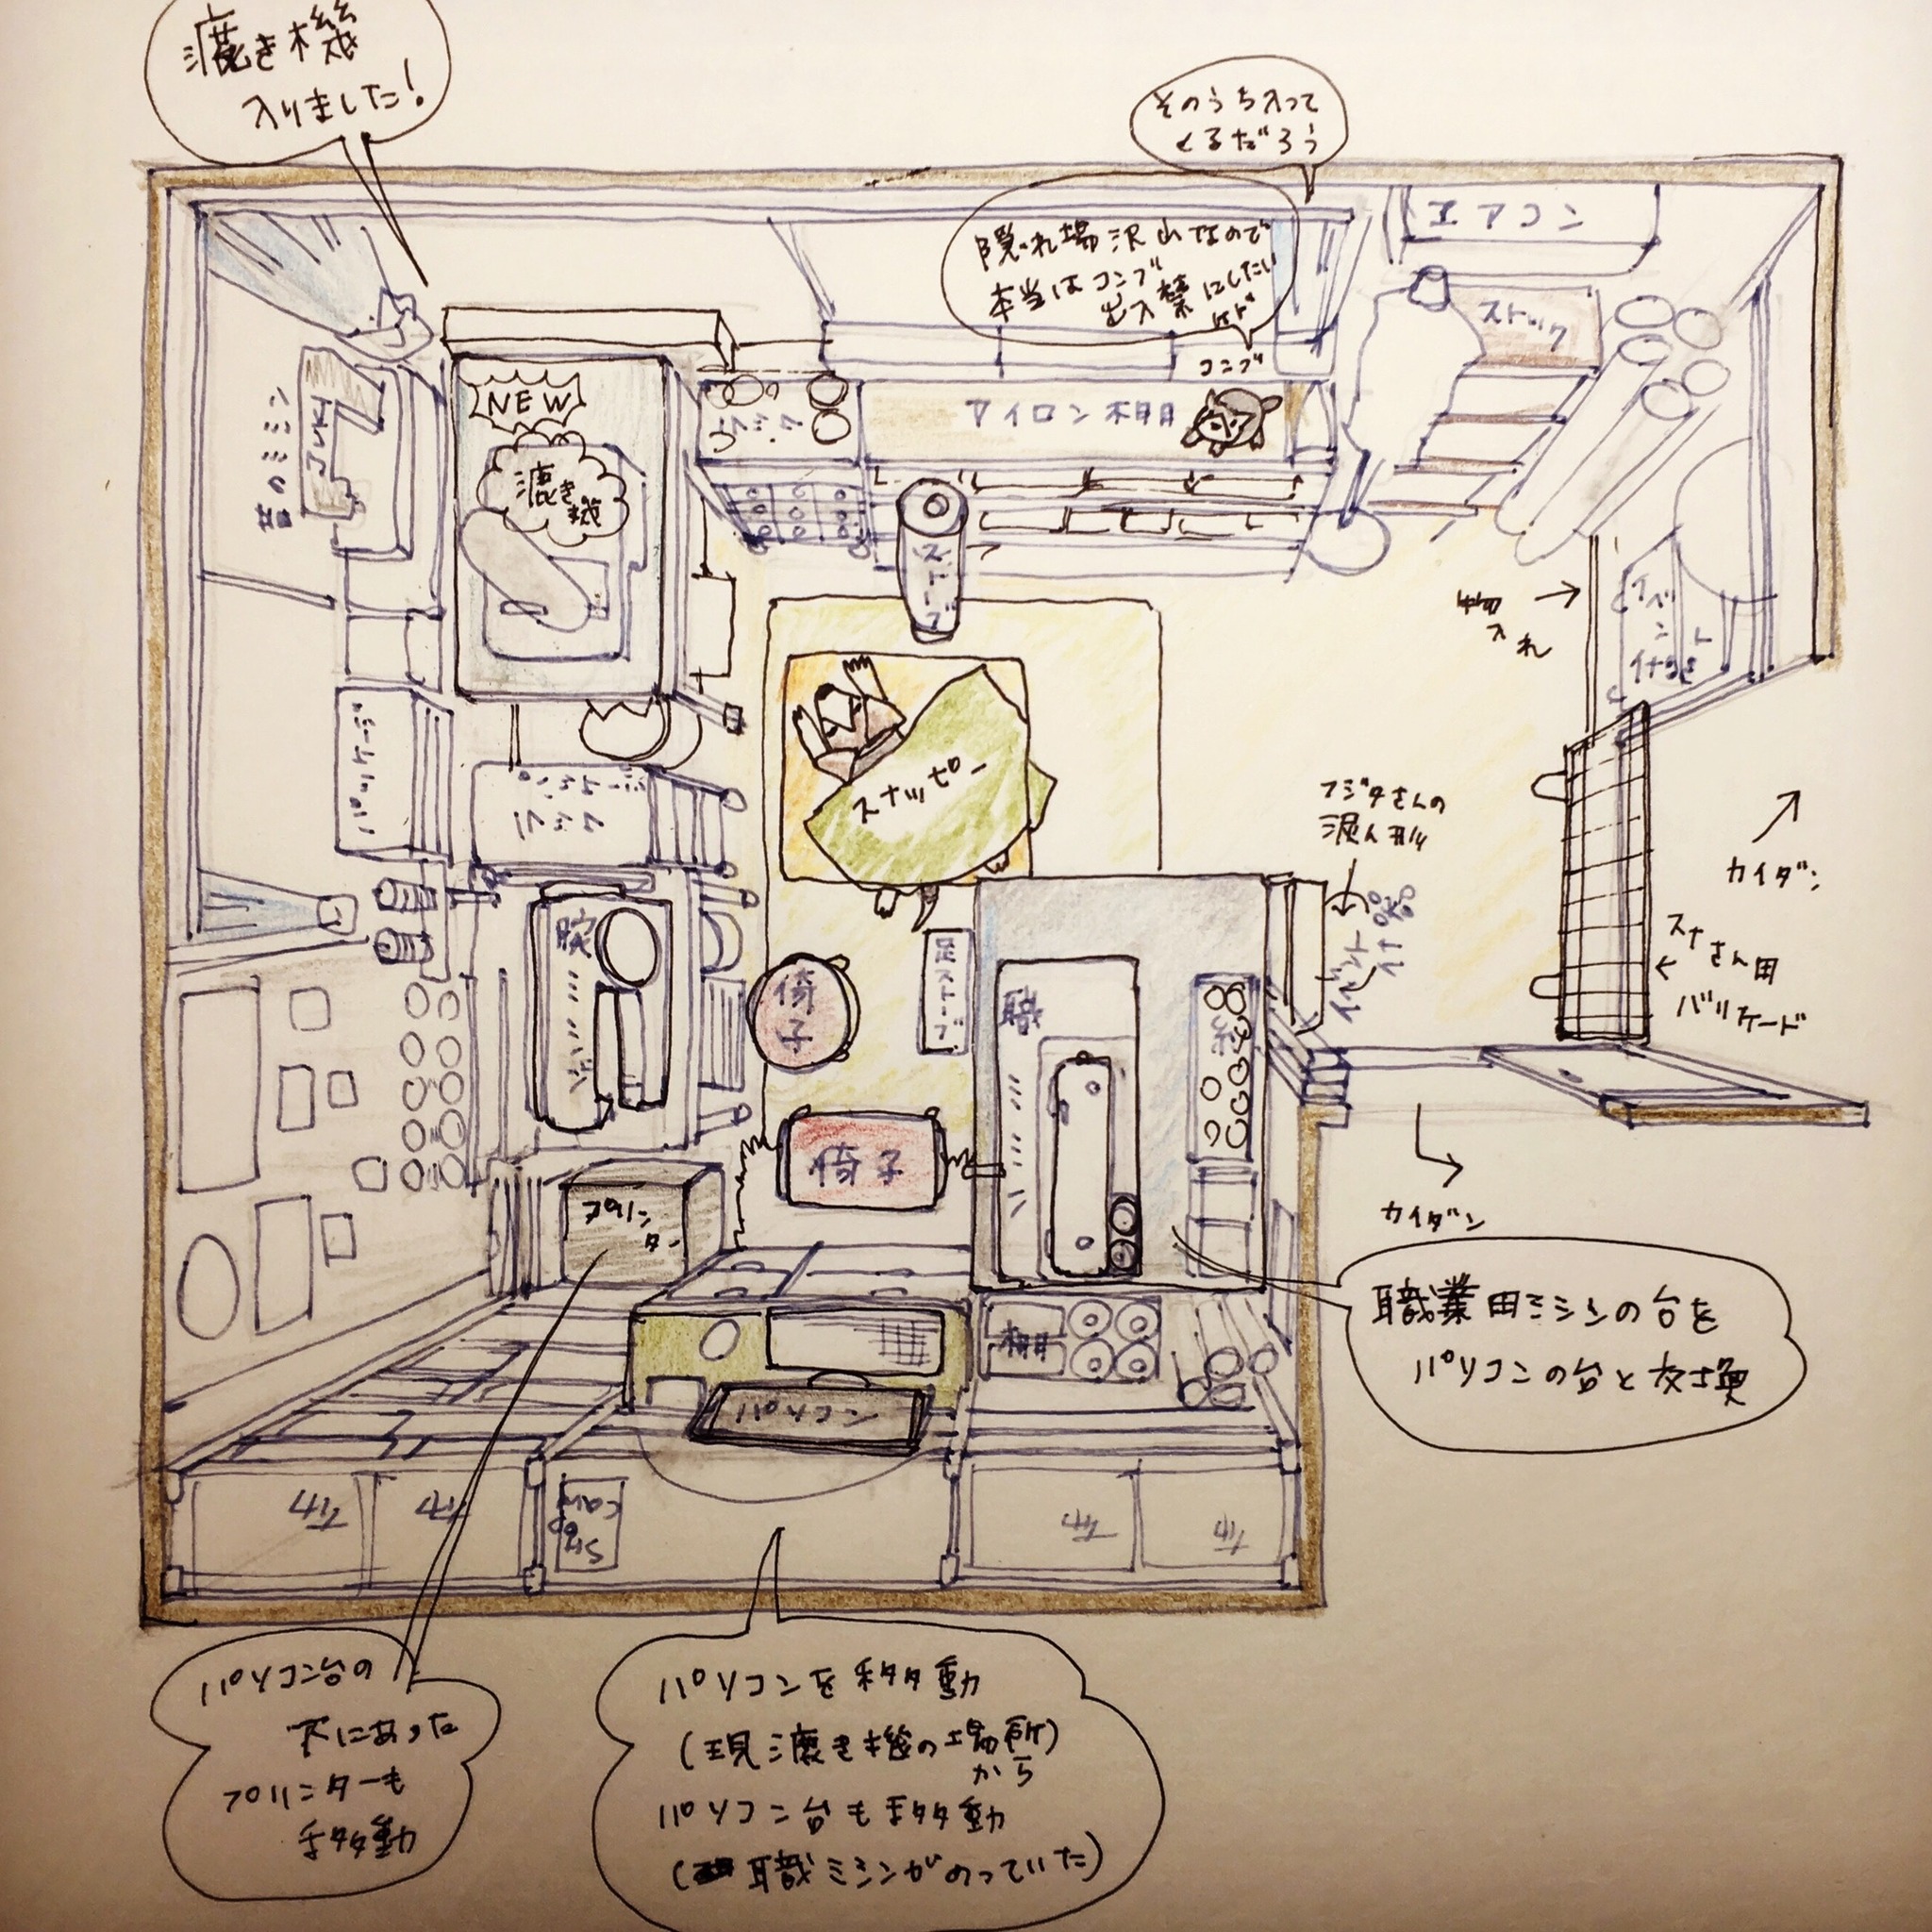 漉き機
入りました!
そのうち入って
くるだろう
隠れ場沢山なので
本当はコンブ
出入禁にしたい
けど
コンブ
エアコン
ストック
NEW
漉き
機
昔のミシン
JUKI
アイロン棚
ストーブ
スナッピー
入れ
フジタさんの
カイダン
スナさん用
バリケード
足ストーブ
椅子
椅子
腕ミシン
職ミシン
糸
プリン
ター
カイダン
職業用ミシンの台を
パソコンの台と交換
棚
パソコン
パソコン台の
下にあった
プリンターも
移動
パソコンを移動
(現漉き機の場所)
から
パソコン台も移動
(職ミシンがのっていた)